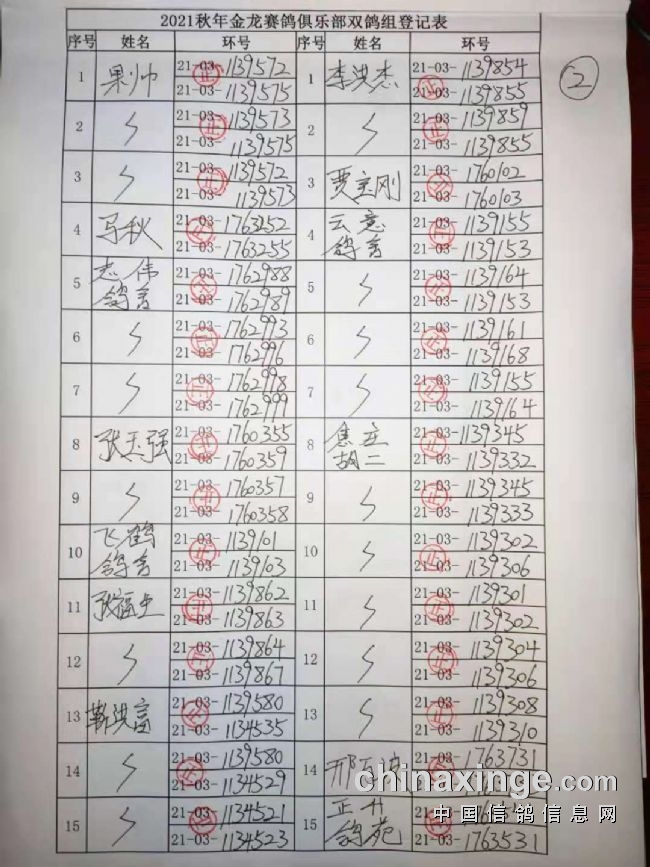 2021秋年金龙赛鸽俱乐部双鸽组登记表
②
序号 姓名 环号 序号 姓名 环号
1 果帅 21-03-1139572 1 李洪杰 21-03-1139854
21-03-1139575 21-03-1139855
2 〃 21-03-1139573 2 〃 21-03-1139859
21-03-1139575 21-03-1139855
3 〃 21-03-1139572 3 贾宝刚 21-03-1760102
21-03-1139573 21-03-1760103
4 马秋 21-03-1763252 4 云意鸽舍 21-03-1139155
21-03-1763255 21-03-1139153
5 志伟鸽舍 21-03-1762988 5 〃 21-03-1139164
21-03-1762989 21-03-1139153
6 〃 21-03-1762993 6 〃 21-03-1139161
21-03-1762996 21-03-1139168
7 〃 21-03-1762998 7 〃 21-03-1139155
21-03-1762999 21-03-1139164
8 张玉强 21-03-1760355 8 焦立胡二 21-03-1139345
21-03-1760359 21-03-1139332
9 〃 21-03-1760357 9 〃 21-03-1139345
21-03-1760358 21-03-1139333
10 飞鹤鸽舍 21-03-1139101 10 〃 21-03-1139302
21-03-1139103 21-03-1139306
11 张福生 21-03-1139862 11 〃 21-03-1139301
21-03-1139863 21-03-1139302
12 〃 21-03-1139864 12 〃 21-03-1139304
21-03-1139867 21-03-1139306
13 靳洪富 21-03-1139580 13 〃 21-03-1139308
21-03-1134535 21-03-1139310
14 〃 21-03-1139580 14 邢 21-03-1763731
21-03-1134529
15 〃 21-03-1134521 15 正升鸽苑
21-03-1134523 21-03-1763531
chinaxinge.com
中国信鸽信息网